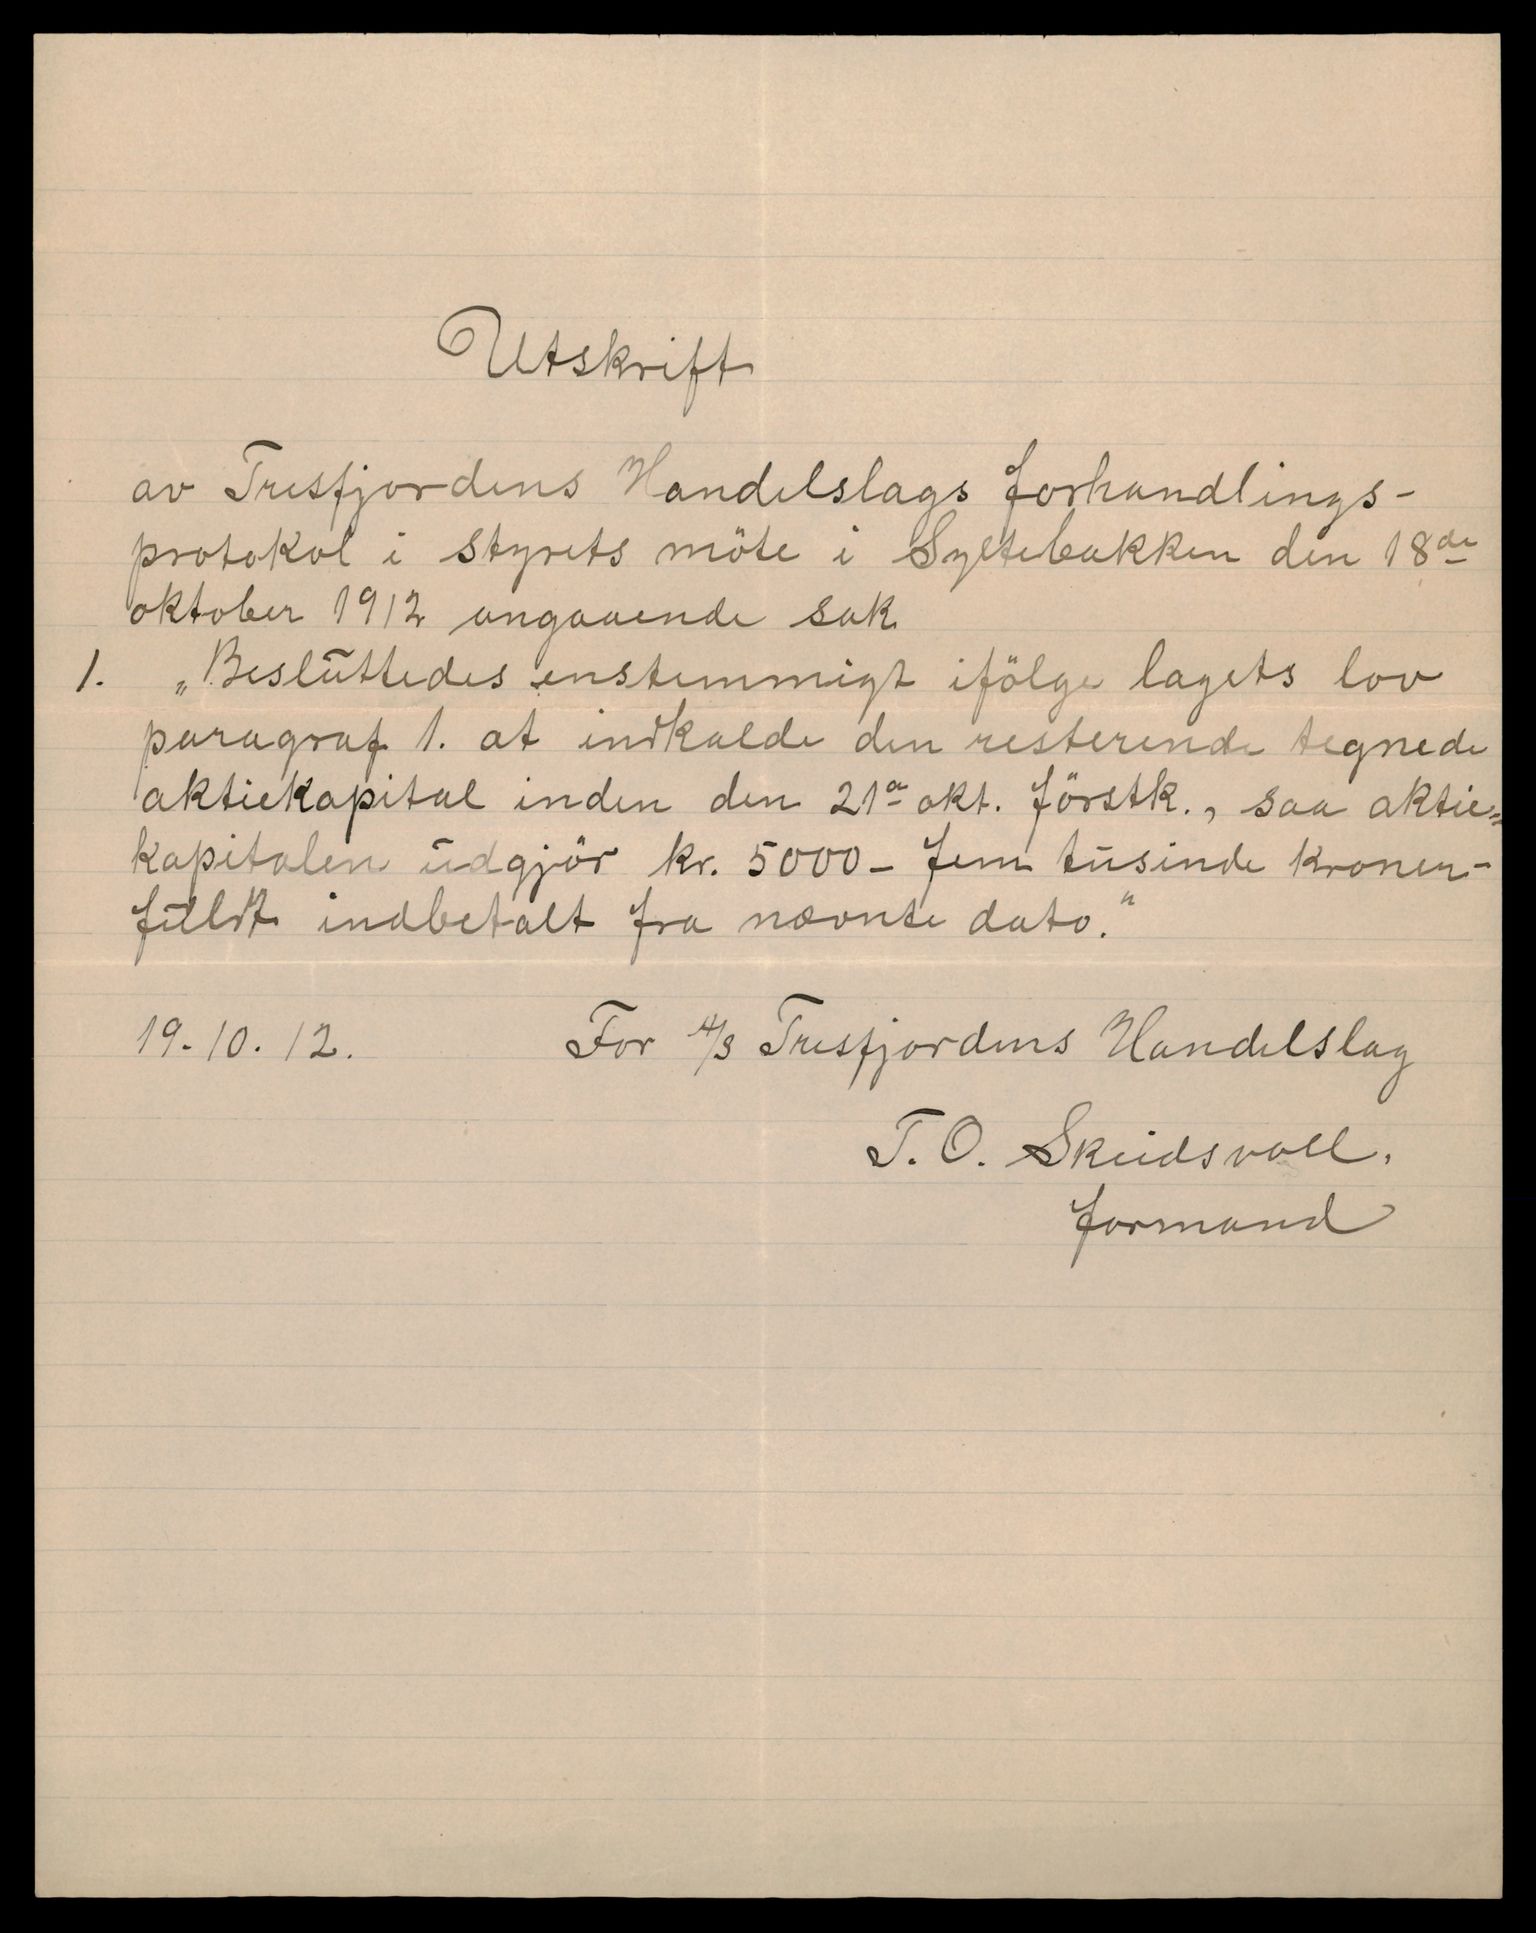 Utskrift
av Tresfjordens Handelslags forhandlings-
protokol i styrets möte i Syltebakken den 18de
oktober 1912 angaaende sak
1. „Besluttedes enstemmigt ifölge lagets lov
paragraf 1. at indkalde den resterende tegnede
aktiekapital inden den 21a okt. förstk., saa aktie-
kapitalen udgjör kr. 5000 - fem tusinde kroner -
fuldt indbetalt fra nævnte dato.“
19.10.12. For A/S Tresfjordens Handelslag
T. O. Skeidsvoll.
formand